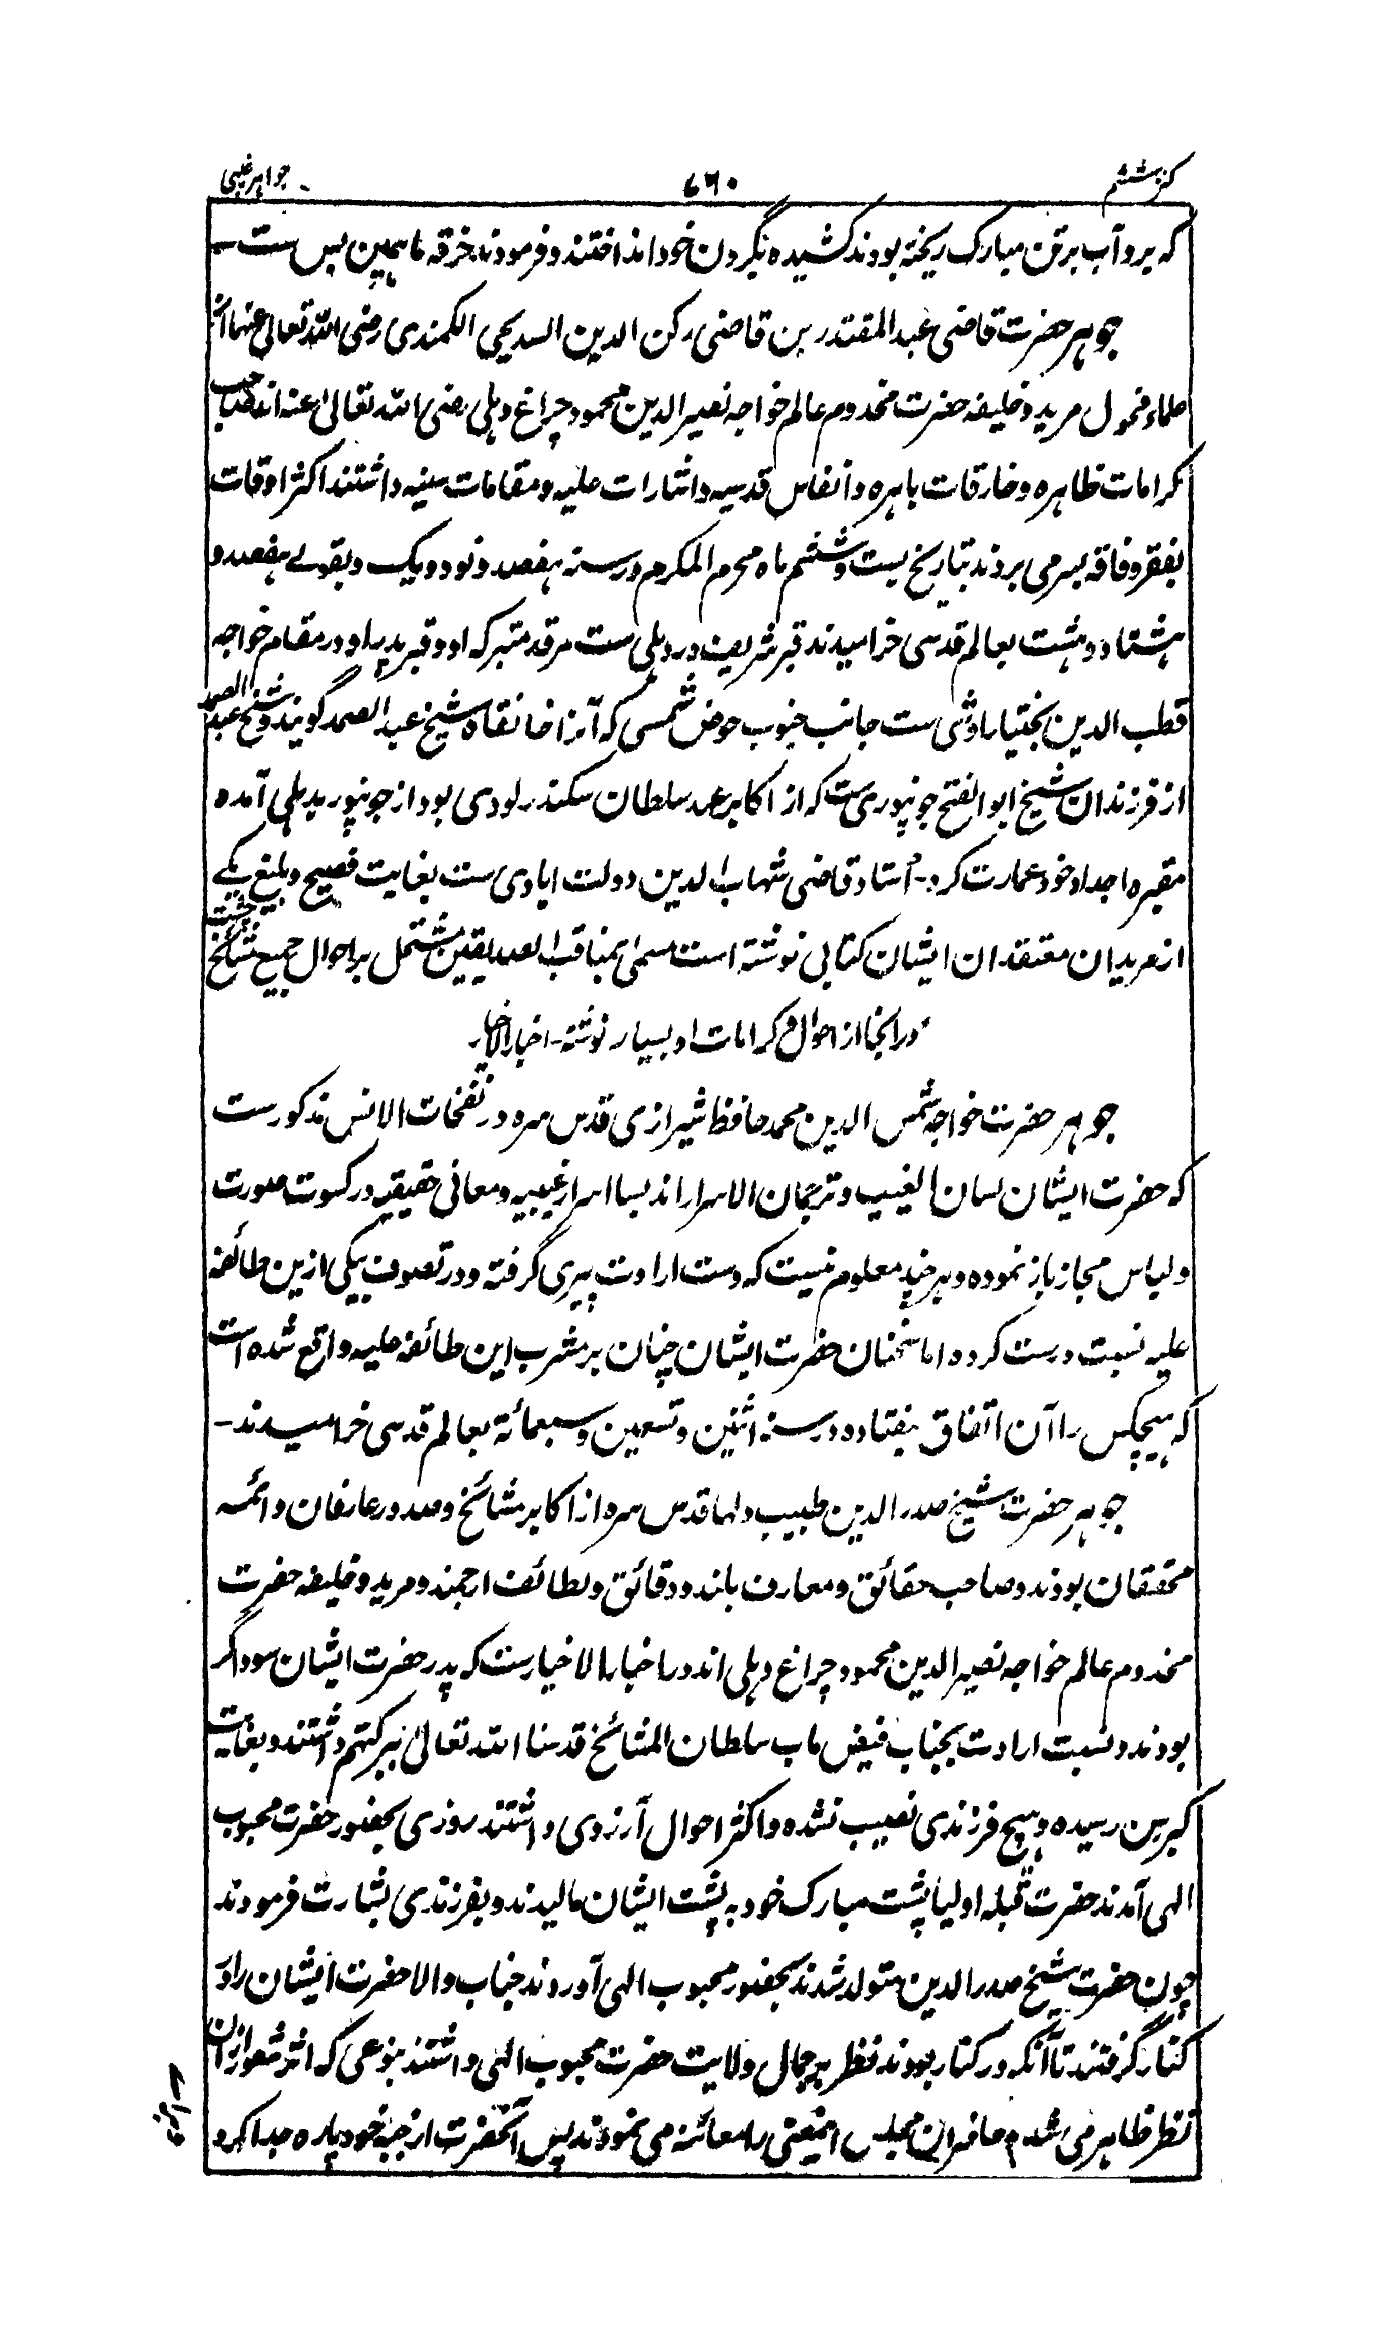 کنز ششم
۷۶۰
جواہر غیبی
که برو آب بر تن مبارک ریخته بودند کشیده بگردن خود انداختند و فرمودند خرقه ما همین بس ست ـ
جوہر حضرت قاضی عبد المقتدر بن قاضی رکن الدین السدیحی الکمندی رضی الله تعالی عنہما از
علماء فحول مرید و خلیفه حضرت مخدوم عالم خواجه نصیر الدین محمود چراغ دہلی رضی الله تعالیٰ عنه اند صاحب
کرامات ظاہره و خارقات باہره و انفاس قدسیه و اشارات علیه و مقامات سنیه داشتند اکثر اوقات
بفقر و فاقه بسر می بردند بتاریخ بست و ششم ماه محرم المکرم در سنه ہفصد و نود و یک و بقولے ہفصد و
ہشتاد و ہشت بعالم قدسی خرامیدند قبر شریف در دہلی ست مرقد متبرکه او و قبر پدر او در مقام خواجه
قطب الدین بختیار اوشی ست جانب جنوب حوض شمسی که آنرا خانقاه شیخ عبد الصمد گویند و شیخ عبد الصمد
از فرزندان شیخ ابو الفتح جونپوری ست که از اکابر عهد سلطان سکندر لودی بود از جونپور بدہلی آمده
مقبره اجداد خود عمارت کرد ـ اُستاد قاضی شہاب الدین دولت ابادی ست بغایت فصیح و بلیغ یکے
از مریدان معتقدان ایشان کتابی نوشته است مسمیٰ بمناقب الصدیقین مشتمل بر احوال جمیع مشائخ چشت
در انجا از احوال و کرامات او بسیار نوشته ـ اخبار الاخیار
جوہر حضرت خواجه شمس الدین محمد حافظ شیرازی قدس سره در نفحات الانس مذکور ست
که حضرت ایشان لسان الغیب و ترجمان الاسرار اند بسا اسرار غیبیه و معانی حقیقیه در کسوت صورت
و لباس مجاز باز نموده و ہر چند معلوم نیست که دست ارادت پیری گرفته و در تصوف بیکی ازین طائفه
علیه نسبت درست کرده اما سخنان حضرت ایشان چنان بر مشرب این طائفه علیه واقع شده است
که ہیچکس را آن اتفاق نیفتاده در سنه اثنین و تسعین و سبعمائة بعالم قدسی خرامیدند ـ
جوہر حضرت شیخ صدر الدین طبیب دلها قدس سره از اکابر مشائخ و صدور عارفان و ائمه
محققان بودند و صاحب حقائق و معارف بلند و دقائق و لطائف ارجمند و مرید و خلیفه حضرت
مخدوم عالم خواجه نصیر الدین محمود چراغ دہلی اند در اخبار الاخیار ست که پدر حضرت ایشان سوداگر
بودند و نسبت ارادت بجناب فیض ماب سلطان المشائخ قدسنا الله تعالیٰ ببرکتهم داشتند و بغایت
کبر سن رسیده و ہیچ فرزندی نصیب نشده و اکثر احوال آرزوی داشتند روزی بحضور حضرت محبوب
الهی آمدند حضرت قبله اولیا پشت مبارک خود به پشت ایشان مالیدند و بفرزندی بشارت فرمودند
چون حضرت شیخ صدر الدین متولد شدند بحضور محبوب الهی آوردند جناب والا حضرت ایشان را در
کنار گرفتند تا آنکه در کنار بودند نظر بر جمال ولایت حضرت محبوب الهی داشتند بنوعی که اثر شعور ازان
نظر ظاہر می شد و حاضران مجلس اینمعنی را معائنه می نمودند پس آنحضرت از جبه خود پاره جدا کرد